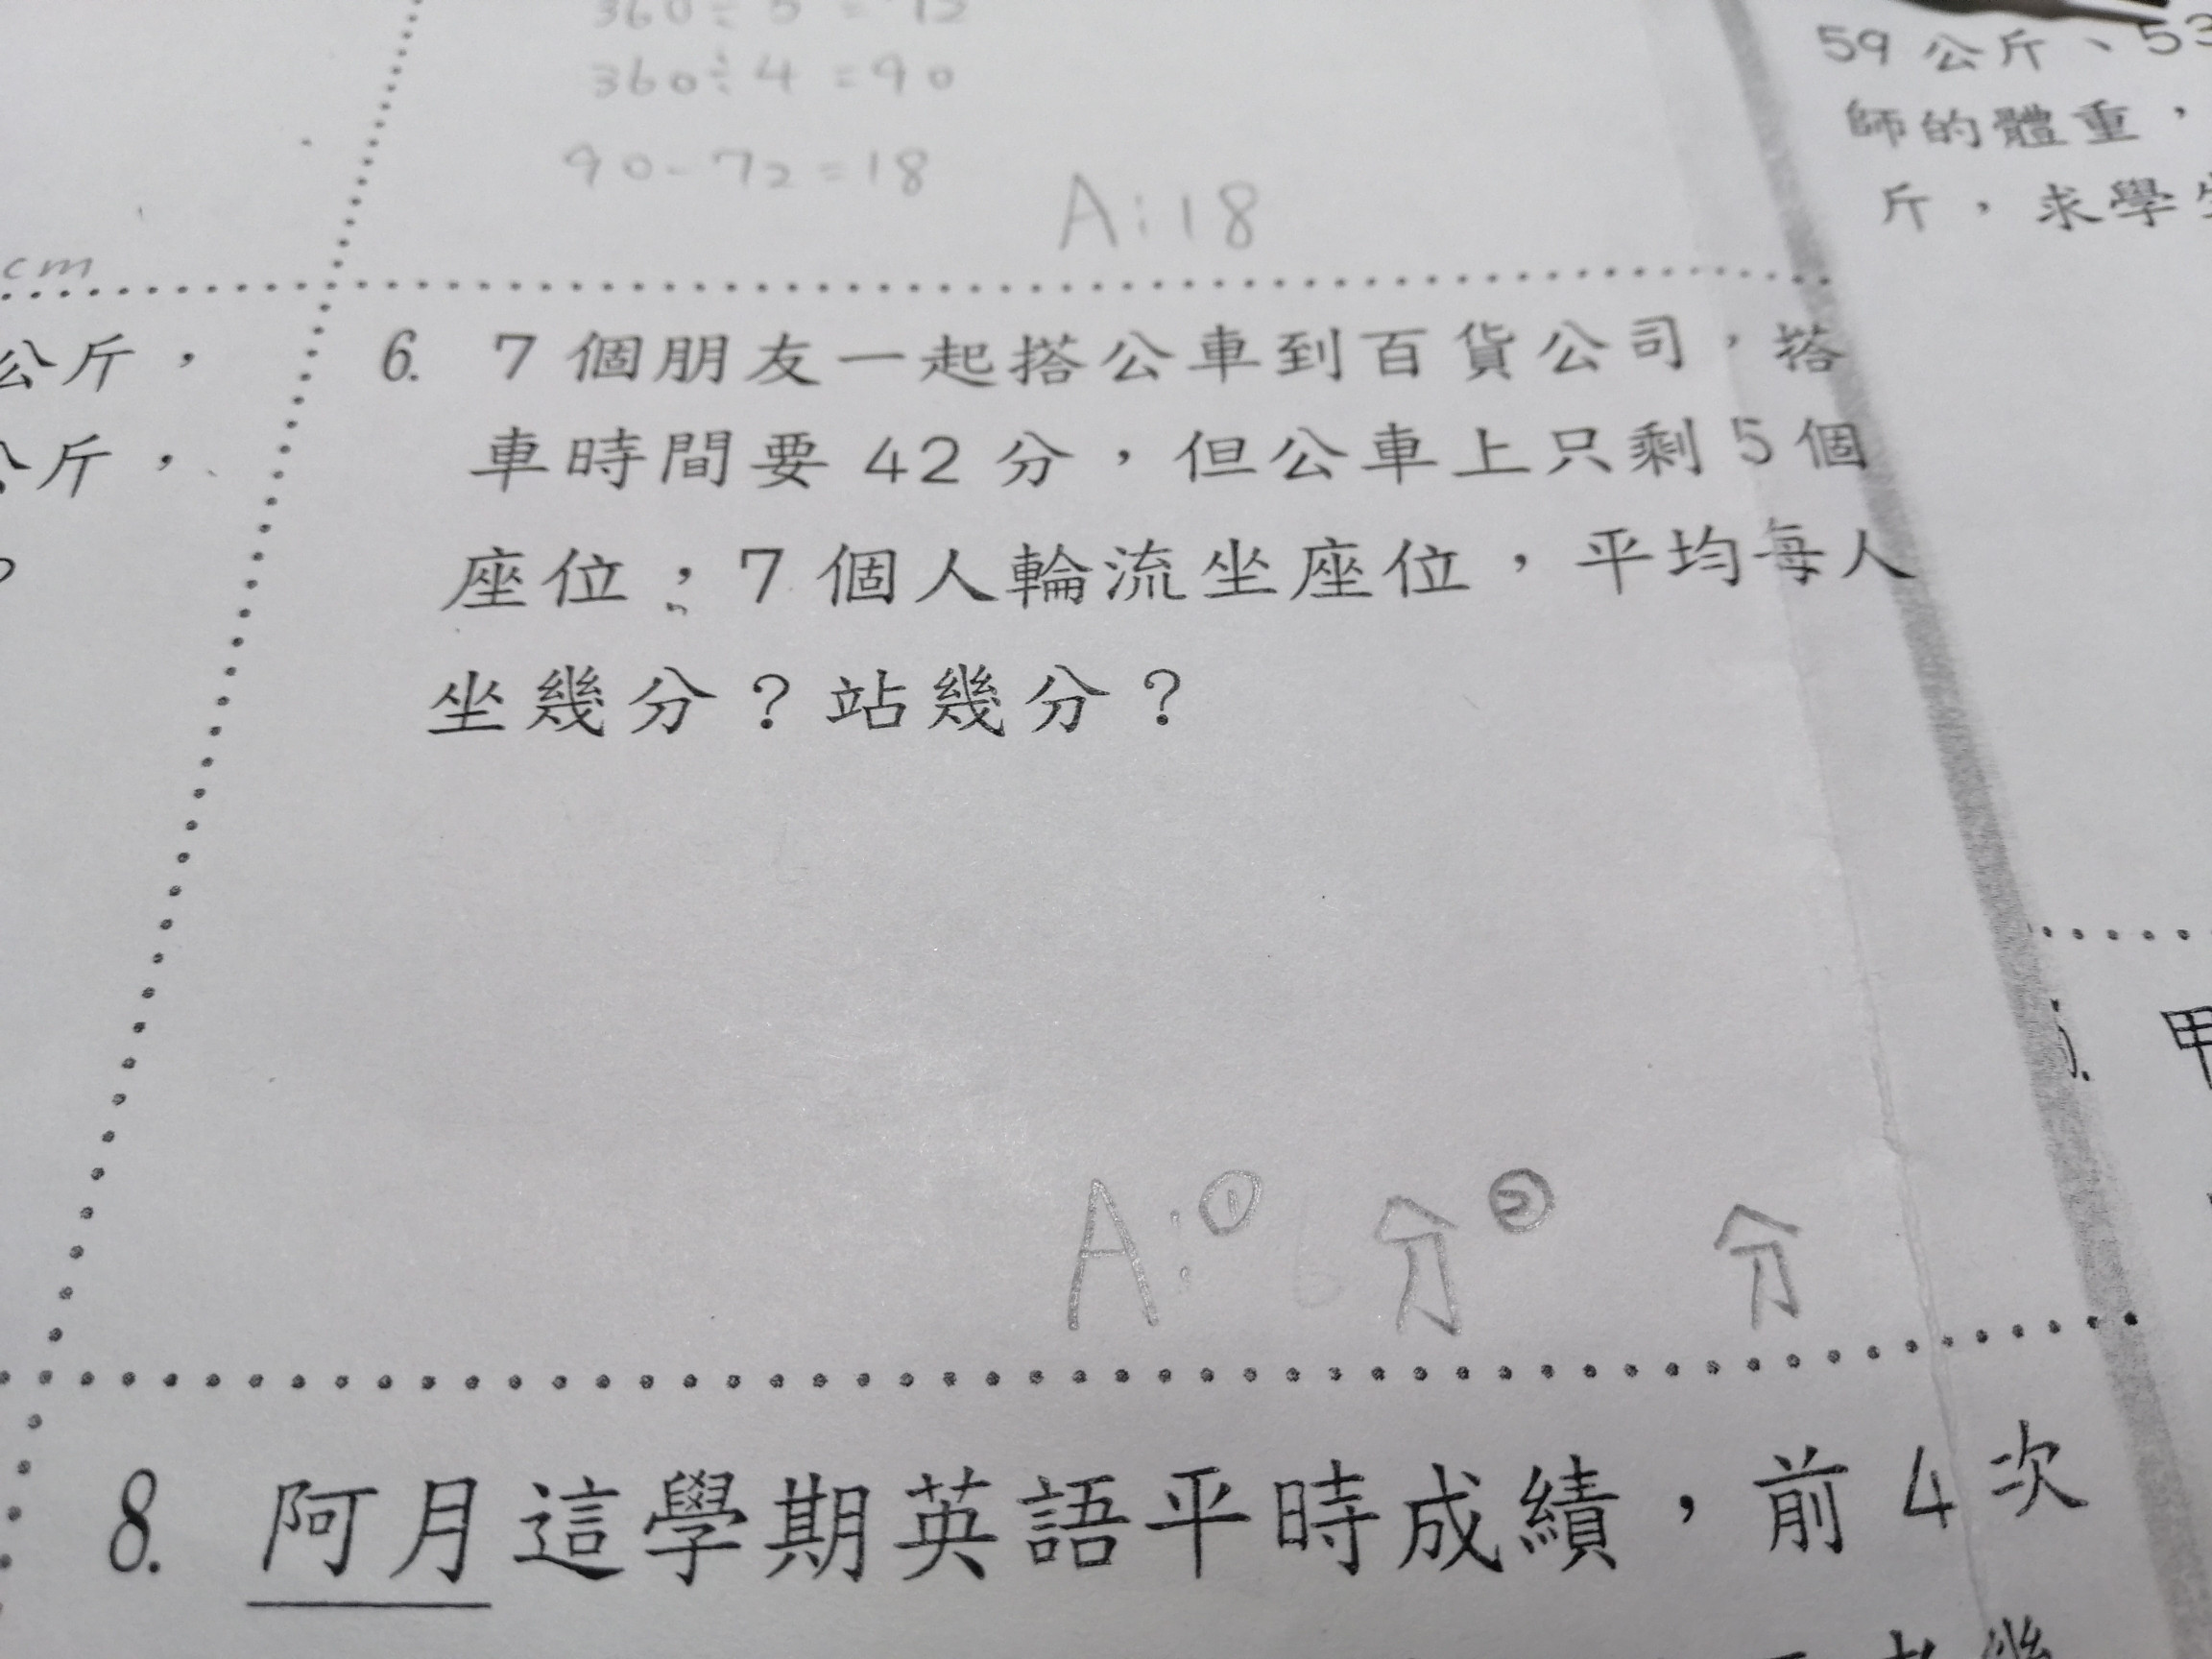 360÷5=72
360÷4=90
90-72=18
A:18
cm
公斤，
公斤，
6. 7個朋友一起搭公車到百貨公司，搭
車時間要42分，但公車上只剩5個
座位；7個人輪流坐座位，平均每人
坐幾分？站幾分？
A:① 分② 分
8. 阿月這學期英語平時成績，前4次
59公斤、53
師的體重，
斤，求學生
甲